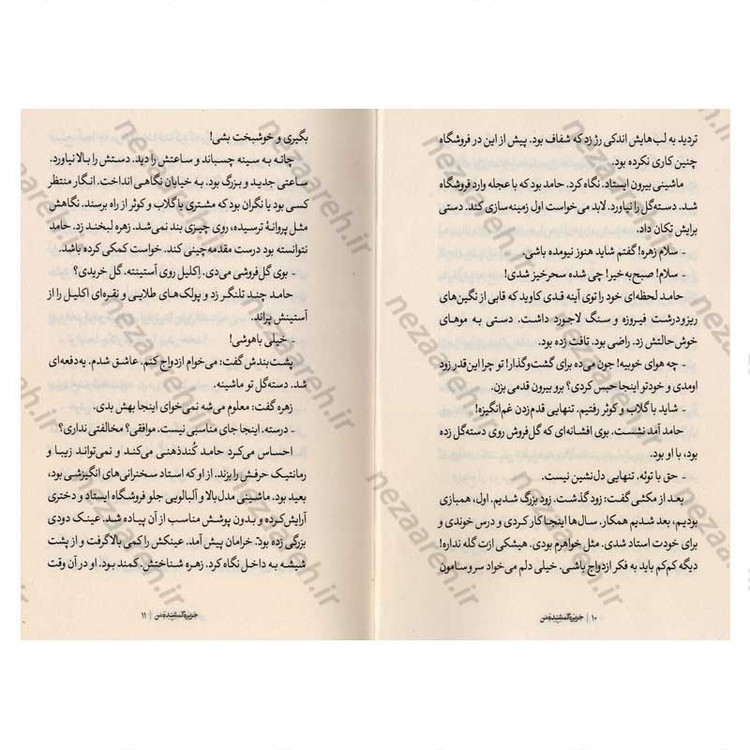 تردید به لب‌هایش اندکی رژ زد که شفاف بود. پیش از این در فروشگاه
چنین کاری نکرده بود.
ماشینی بیرون ایستاد. نگاه کرد. حامد بود که با عجله وارد فروشگاه
شد. دسته‌گل را نیاورد. لابد می‌خواست اول زمینه‌سازی کند. دستی
برایش تکان داد.
- سلام زهره! گفتم شاید هنوز نیومده باشی.
- سلام! صبح‌به‌خیر! چی شده سحرخیز شدی!
حامد لحظه‌ای خود را توی آینه قدی کاوید که قابی از نگین‌های
ریزودرشت فیروزه و سنگ لاجورد داشت. دستی به موهای
خوش‌حالتش زد. راضی بود. تافت زده بود.
- چه هوای خوبیه! جون می‌ده برای گشت‌وگذار! تو چرا این‌قدر زود
اومدی و خودتو اینجا حبس کردی؟ برو بیرون قدمی بزن.
- شاید با گلاب و کوثر رفتیم. تنهایی قدم‌زدن غم‌انگیزه!
حامد آمد نشست. بوی افشانه‌ای که گل‌فروش روی دسته‌گل زده
بود، با او بود.
- حق با توئه. تنهایی دل‌نشین نیست.
بعد از مکثی گفت: زود گذشت. زود بزرگ شدیم. اول، همبازی
بودیم، بعد شدیم همکار. سال‌ها اینجا کار کردی و درس خوندی و
برای خودت استاد شدی. مثل خواهرم بودی. هیشکی ازت گله نداره!
دیگه کم‌کم باید به فکر ازدواج باشی. خیلی دلم می‌خواد سروسامون
۱۰ | جزیره گمشده من
بگیری و خوشبخت بشی!
چانه به سینه چسباند و ساعتش را دید. دستش را بالا نیاورد.
ساعتی جدید و بزرگ بود. به خیابان نگاهی انداخت. انگار منتظر
کسی بود یا نگران بود که مشتری یا گلاب و کوثر از راه برسند. نگاهش
مثل پروانهٔ ترسیده، روی چیزی بند نمی‌شد. زهره لبخند زد. حامد
نتوانسته بود درست مقدمه‌چینی کند. خواست کمکی کرده باشد.
- بوی گل‌فروشی می‌دی. اِکلیل روی آستینته. گل خریدی؟
حامد چند تلنگر زد و پولک‌های طلایی و نقره‌ای اکلیل را از
آستینش پراند.
- خیلی باهوشی!
پشت‌بندش گفت: می‌خوام ازدواج کنم. عاشق شدم. یه‌دفعه‌ای
شد. دسته‌گل تو ماشینه.
زهره گفت: معلوم می‌شه نمی‌خوای اینجا بهش بدی.
- درسته. اینجا جای مناسبی نیست. موافقی؟ مخالفتی نداری؟
احساس می‌کرد حامد کُندذهنی می‌کند و نمی‌تواند زیبا و
رمانتیک حرفش را بزند. از او که استاد سخنرانی‌های انگیزشی بود،
بعید بود. ماشینی مدل‌بالا و آلبالویی جلو فروشگاه ایستاد و دختری
آرایش‌کرده و بدون پوشش مناسب از آن پیاده شد. عینک دودی
بزرگی زده بود. خرامان پیش آمد. عینکش را کمی بالا گرفت و از پشت
شیشه به داخل نگاه کرد. زهره شناختش. کمند بود. او در آن وقت
جزیره گمشده من | ۱۱
nezaareh.ir